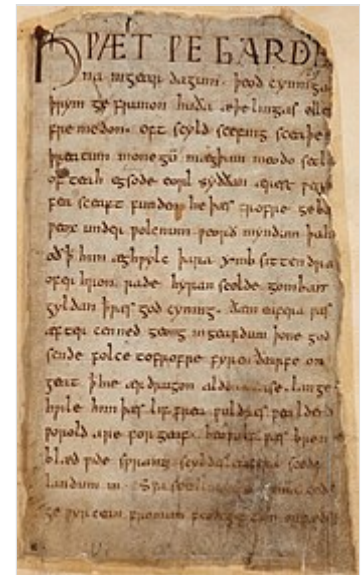 HǷÆT ǷE GARDE
na ingear dagum. þeod cyninga
þrym ge frunon huða æþelingas elle
fremedon. oft scyld scefing sceaþe
þreatum monegū mægþum meodo setl
of teah egsode eorl syððan ærest ƿær
fea sceaft funden he þæs frofre geba
ƿeox under ƿolcnum ƿeorð myndum þah
oð þ him æghƿylc þara ymb sittendra
ofer hron rade hyran scolde gomban
gyldan þæt ƿæs god cyning. ðæm eafera ƿæs
æfter cenned geong ingeardum þone god
sende folce tofrofre fyren ðearfe on
geat þ hie ær drugon aldor ase. lange
hƿile him þæs lif frea ƿuldres ƿealdend
ƿorold are forgeaf. beoƿulf ƿæs breme
blæd ƿide sprang scyldes eafera scede
landum in. sƿa sceal
ge ƿyrcean fromum feoh giftum